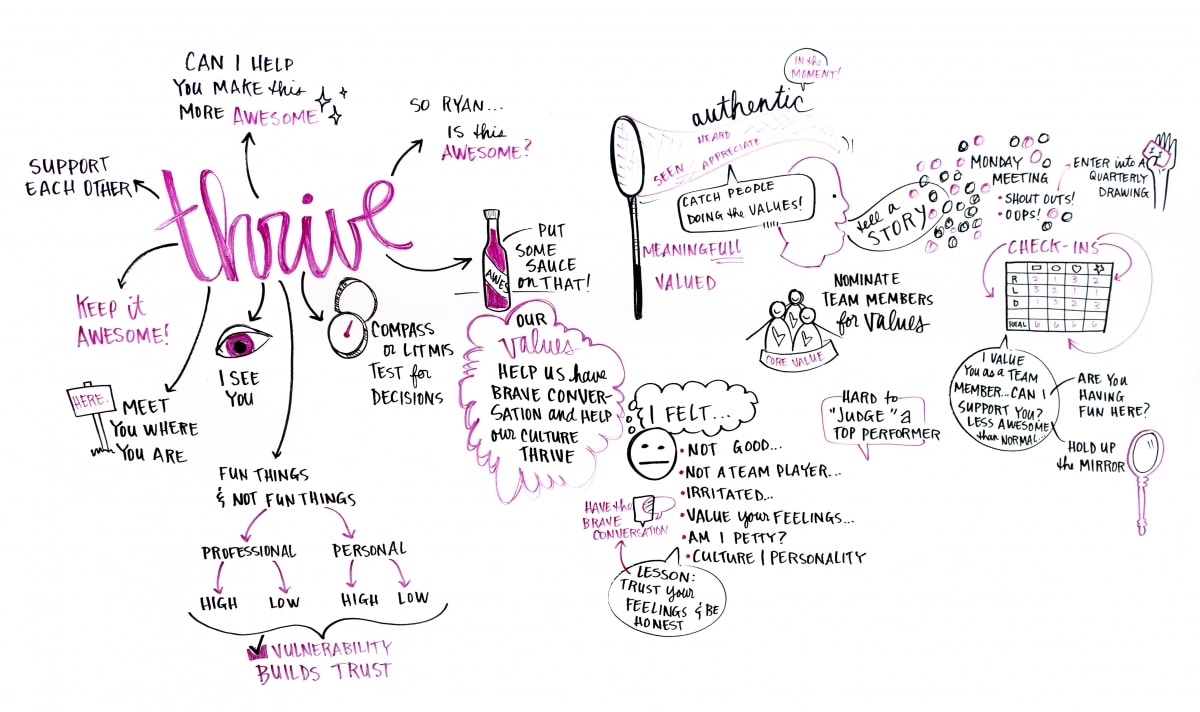 CAN I HELP
YOU MAKE this
MORE AWESOME
SO RYAN...
IS this
AWESOME?
SUPPORT
EACH OTHER
thrive
KEEP it
AWESOME!
HERE.
MEET
YOU WHERE
YOU ARE
I SEE
YOU
COMPASS
OR LITMIS
TEST for
DECISIONS
AWES
PUT
SOME
SAUCE
ON THAT!
FUN THINGS
& NOT FUN THINGS
PROFESSIONAL
PERSONAL
HIGH
LOW
HIGH
LOW
VULNERABILITY
BUILDS TRUST
OUR
values
HELP US have
BRAVE CONVER-
SATION and HELP
our CULTURE
THRIVE
IN the
MOMENT!
authentic
HEARD
SEEN APPRECIATE
CATCH PEOPLE
DOING the VALUES!
MEANINGFULL
VALUED
tell a
STORY
MONDAY
MEETING
• SHOUT OUTS!
• OOPS!
ENTER into A
QUARTERLY
DRAWING
NOMINATE
TEAM MEMBERS
for values
CORE VALUE
CHECK-INS
R 2 1 3 2
L
D 1 3 2
TOTAL 6 6 6 6
I VALUE
YOU as a TEAM
MEMBER...CAN I
SUPPORT YOU?
LESS AWESOME
than NORMAL...
ARE YOU
HAVING
FUN HERE?
HOLD UP
the MIRROR
HARD to
"JUDGE" a
TOP PERFORMER
I FELT...
• NOT GOOD...
• NOT A TEAM PLAYER...
• IRRITATED...
• VALUE your FEELINGS...
• AM I PETTY?
• CULTURE | PERSONALITY
HAVE the
BRAVE
CONVERSATION
LESSON:
TRUST your
FEELINGS & BE
HONEST